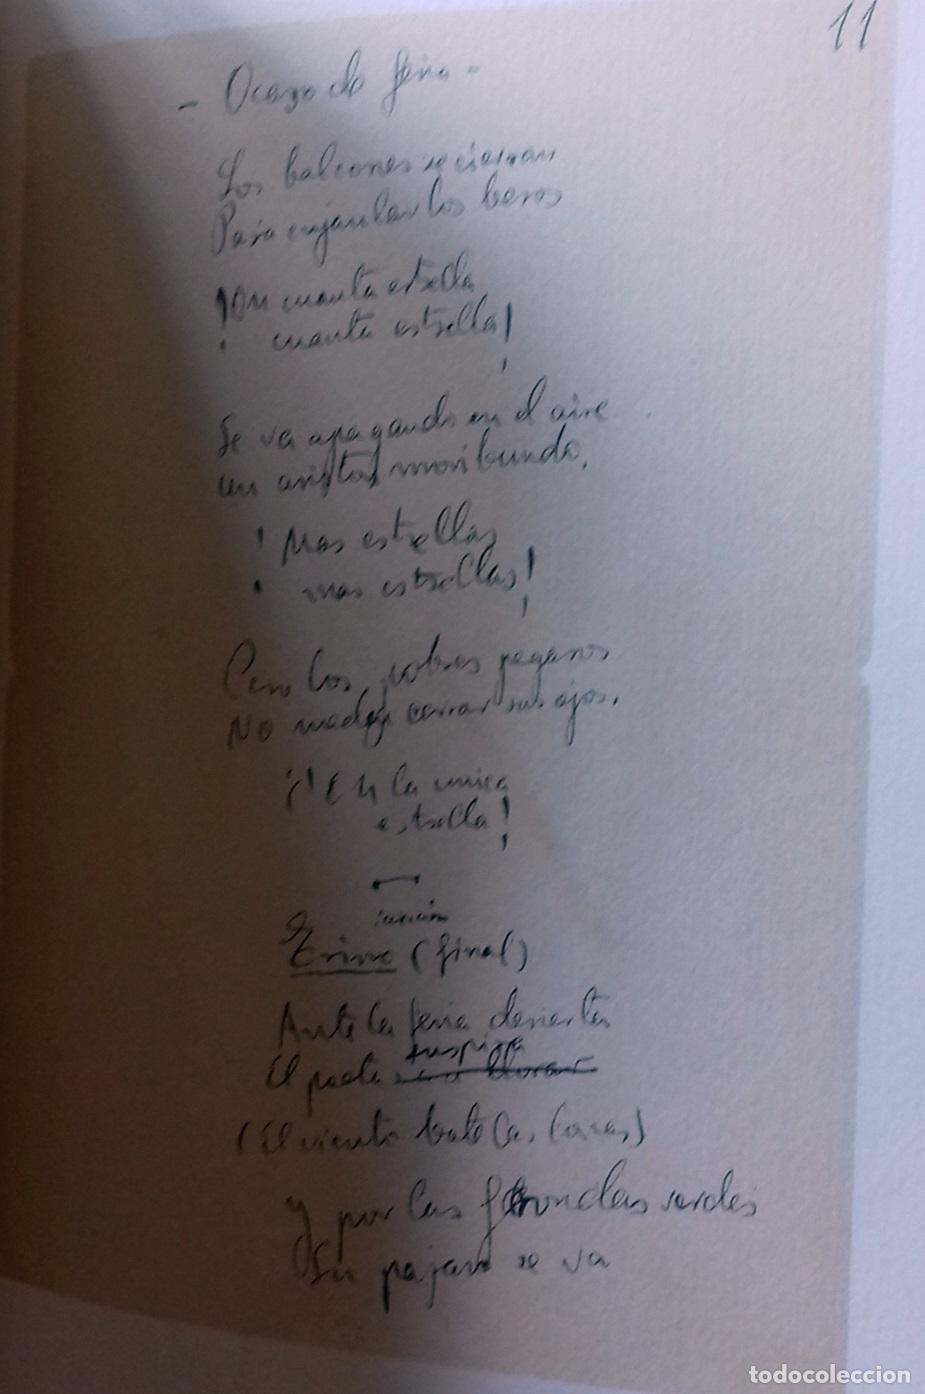 11
- Ocaso de feria -
Los balcones se cierran
Para enjaular los besos
¡Oh cuanta estrella
cuanta estrella!
Se va apagando en el aire
un cristal moribundo.
¡Mas estrellas
mas estrellas!
Pero los pobres pegasos
No cerrar sus ojos.
¡En la unica
estrella!
canción
(final)
Ante la feria desierta
suspira
El poeta llorar
(El viento bate las lonas)
Y por las frondas verdes
Su pajaro se va
todocoleccion